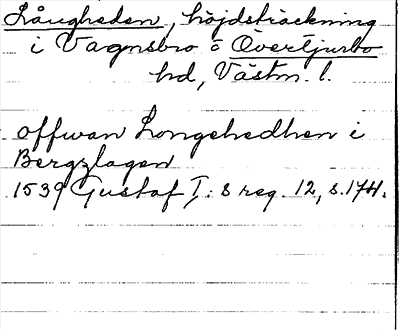 Långheden, höjdsträckning
i Vagnsbro o Övertjurbo
hd, Västm. l.
offwan Longehedhen i
Bergzlagen
1539 Gustaf I:s reg. 12, s. 174.